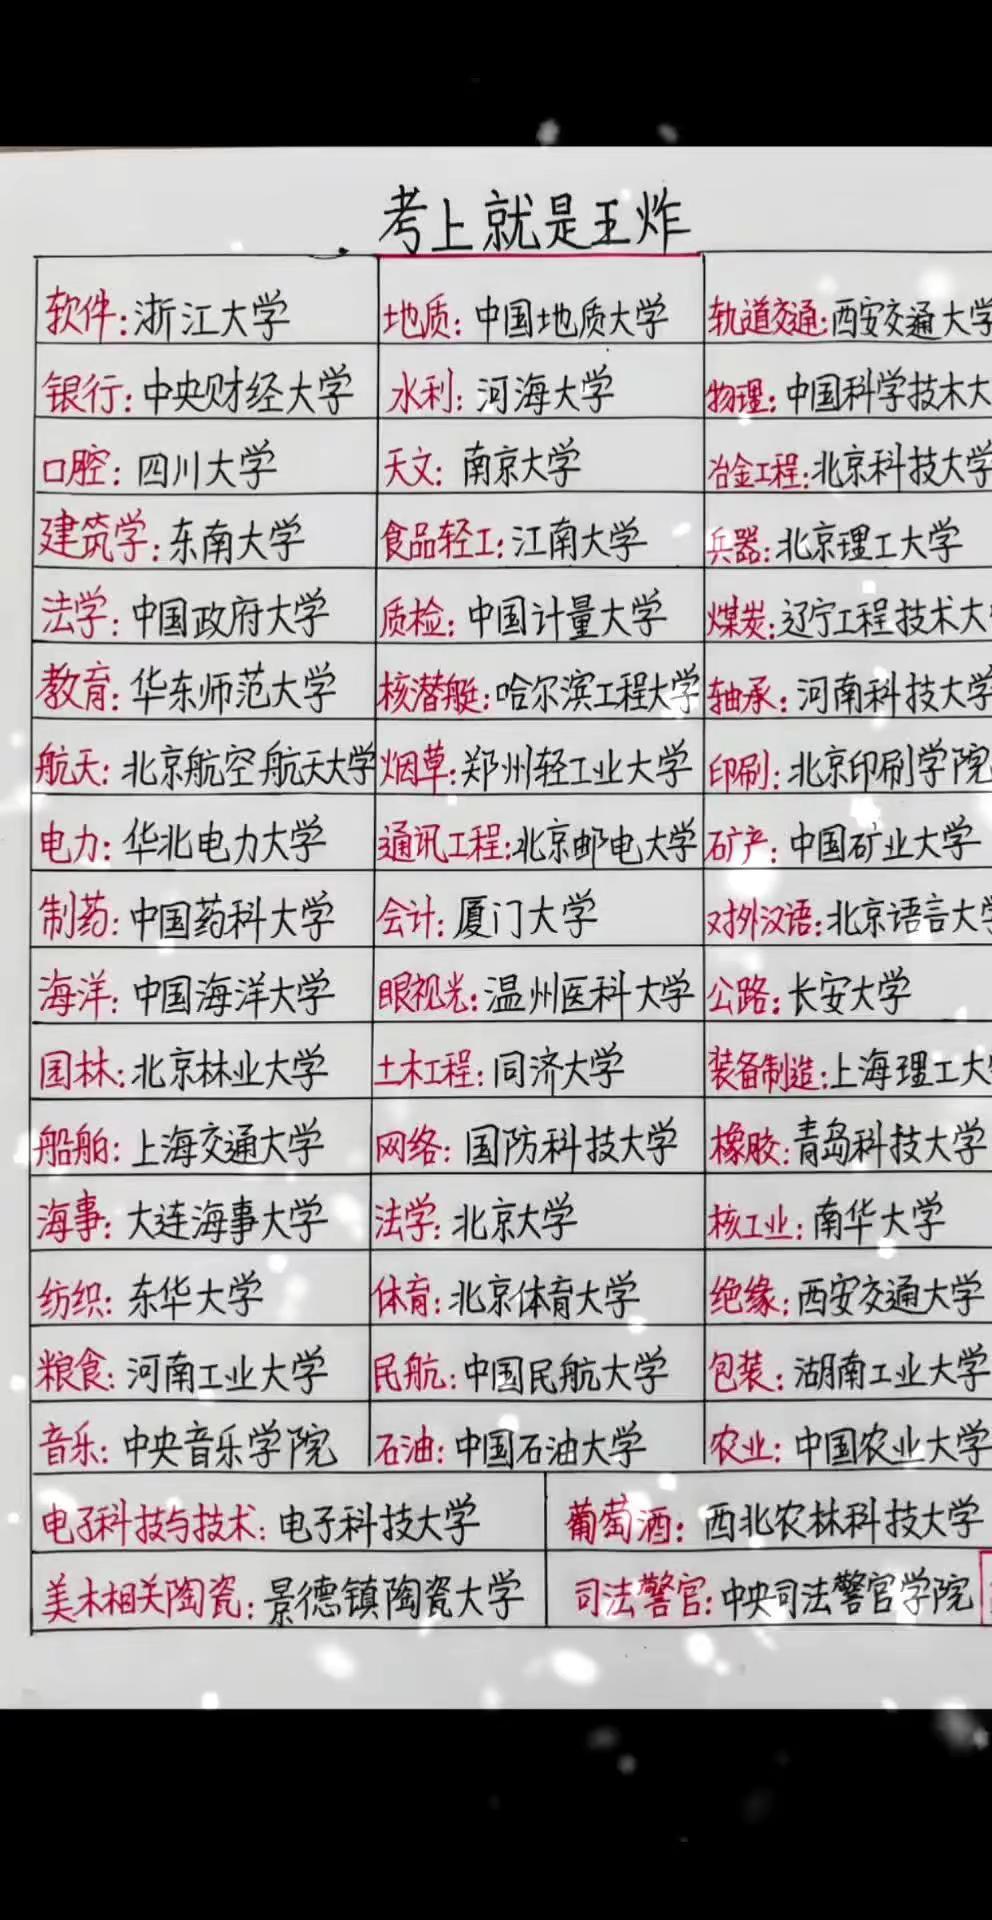 考上就是王炸
软件:浙江大学 地质:中国地质大学 轨道交通:西安交通大学
银行:中央财经大学 水利:河海大学 物理:中国科学技术大
口腔:四川大学 天文:南京大学 冶金工程:北京科技大学
建筑学:东南大学 食品轻工:江南大学 兵器:北京理工大学
法学:中国政府大学 质检:中国计量大学 煤炭:辽宁工程技术大
教育:华东师范大学 核潜艇:哈尔滨工程大学 轴承:河南科技大学
航天:北京航空航天大学 烟草:郑州轻工业大学 印刷:北京印刷学院
电力:华北电力大学 通讯工程:北京邮电大学 矿产:中国矿业大学
制药:中国药科大学 会计:厦门大学 对外汉语:北京语言大学
海洋:中国海洋大学 眼视光:温州医科大学 公路:长安大学
园林:北京林业大学 土木工程:同济大学 装备制造:上海理工大
船舶:上海交通大学 网络:国防科技大学 橡胶:青岛科技大学
海事:大连海事大学 法学:北京大学 核工业:南华大学
纺织:东华大学 体育:北京体育大学 绝缘:西安交通大学
粮食:河南工业大学 民航:中国民航大学 包装:湖南工业大学
音乐:中央音乐学院 石油:中国石油大学 农业:中国农业大学
电子科技与技术:电子科技大学 葡萄酒:西北农林科技大学
美木相关陶瓷:景德镇陶瓷大学 司法警官:中央司法警官学院